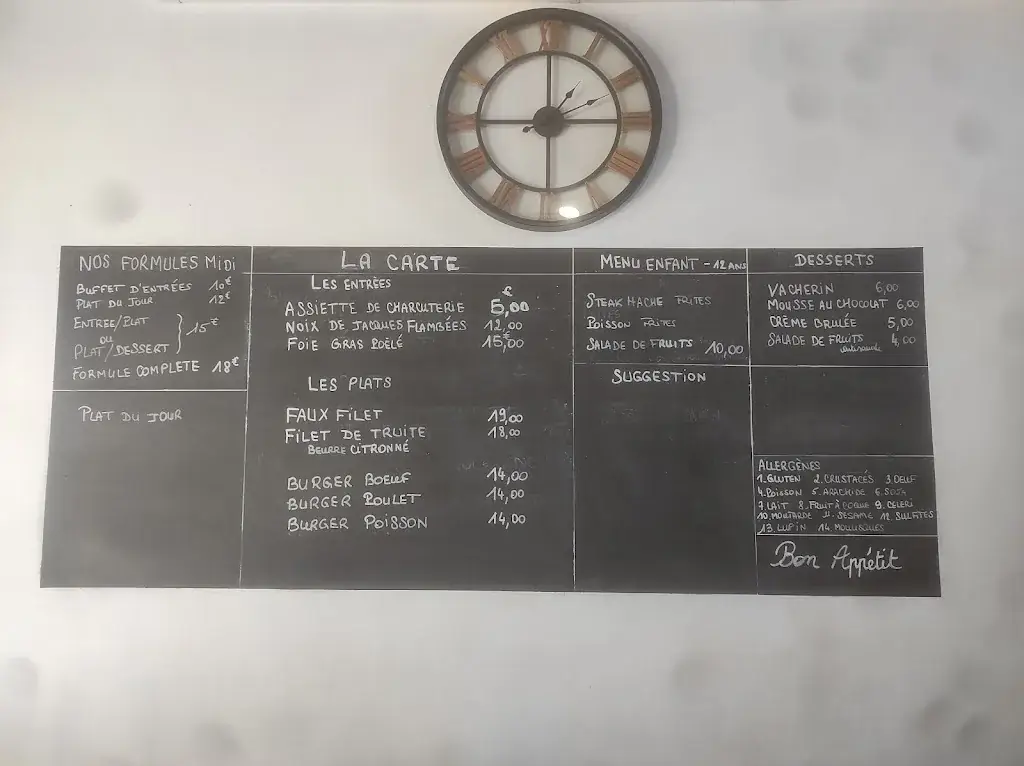 NOS FORMULES MIDI
BUFFET D'ENTRÉES 10€
PLAT DU JOUR 12€
ENTREE/PLAT
OU
PLAT/DESSERT
15€
FORMULE COMPLETE 18€
PLAT DU JOUR
LA CARTE
LES ENTRÉES
€
ASSIETTE DE CHARCUTERIE 5,00
NOIX DE JACQUES FLAMBÉES 12,00
FOIE GRAS POÊLÉ 15,00
LES PLATS
FAUX FILET 19,00
FILET DE TRUITE 18,00
BEURRE CITRONNÉ
BURGER BOEUF 14,00
BURGER POULET 14,00
BURGER POISSON 14,00
MENU ENFANT - 12 ANS
STEAK HACHE FRITES
POISSON FRITES
SALADE DE FRUITS 10,00
SUGGESTION
DESSERTS
VACHERIN 6,00
MOUSSE AU CHOCOLAT 6,00
CRÈME BRULÉE 5,00
SALADE DE FRUITS 4,00
ALLERGÈNES
1. GLUTEN 2. CRUSTACÉS 3. OEUF
4. POISSON 5. ARACHIDE 6. SOJA
7. LAIT 8. FRUIT À COQUE 9. CELERI
10. MOUTARDE 11. SESAME 12. SULFITES
13. LUPIN 14. MOLLUSQUES
Bon Appétit